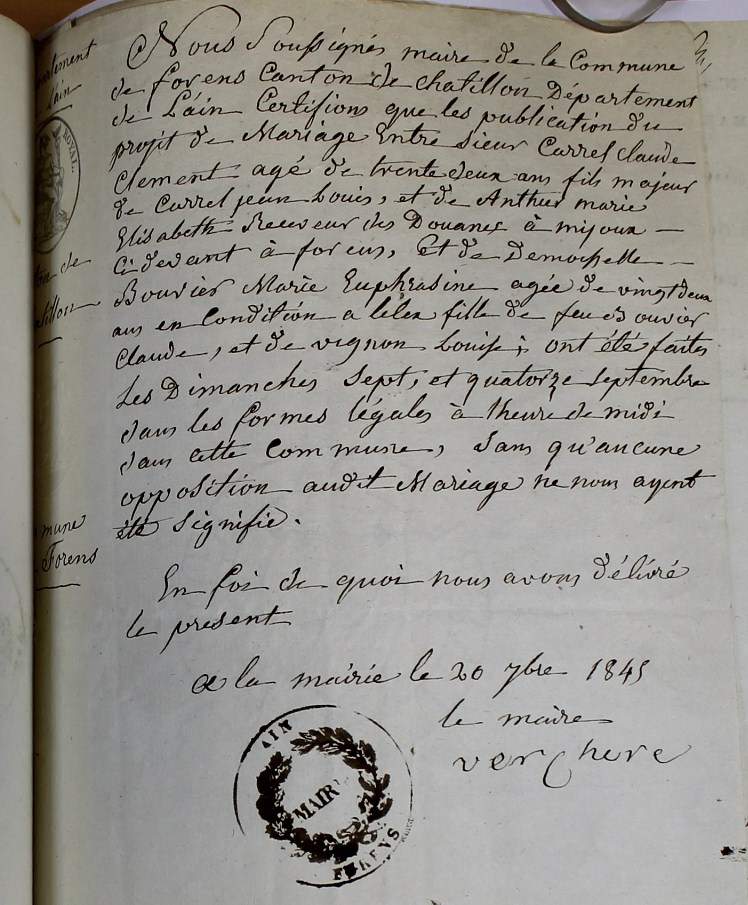 artement
l'ain
ROYAL.
on de
atillon
mmune
Forens
Nous Soussignés maire de la Commune
de forens Canton de chatillon Département
de L'ain Certifions que les publication du
projit de Mariage Entre sieur Carrel claude
Clement agé de trente deux ans fils majeur
de Carrel jean Louis, et de Anthur marie
Elisabeth Receveur des Douanes à mijoux —
Cidevant à forens, Et de Demoiselle —
Bouvier Marie Euphrasine agée de vingt deux
ans en Condition a lélex fille de feu Bouvier
Claude, et de vignon Louise; ont été faites
Les Dimanches Sept, et quatorze Septembre
dans les formes légales à l'heure de midi
dans cette Commune, sans qu'aucune
opposition audit Mariage ne nous ayent
été signifie.
En foi de quoi nous avons délivré
le present
a la mairie le 20 7bre 1845
le maire
verchere
AIN
MAIRIE
FORENS